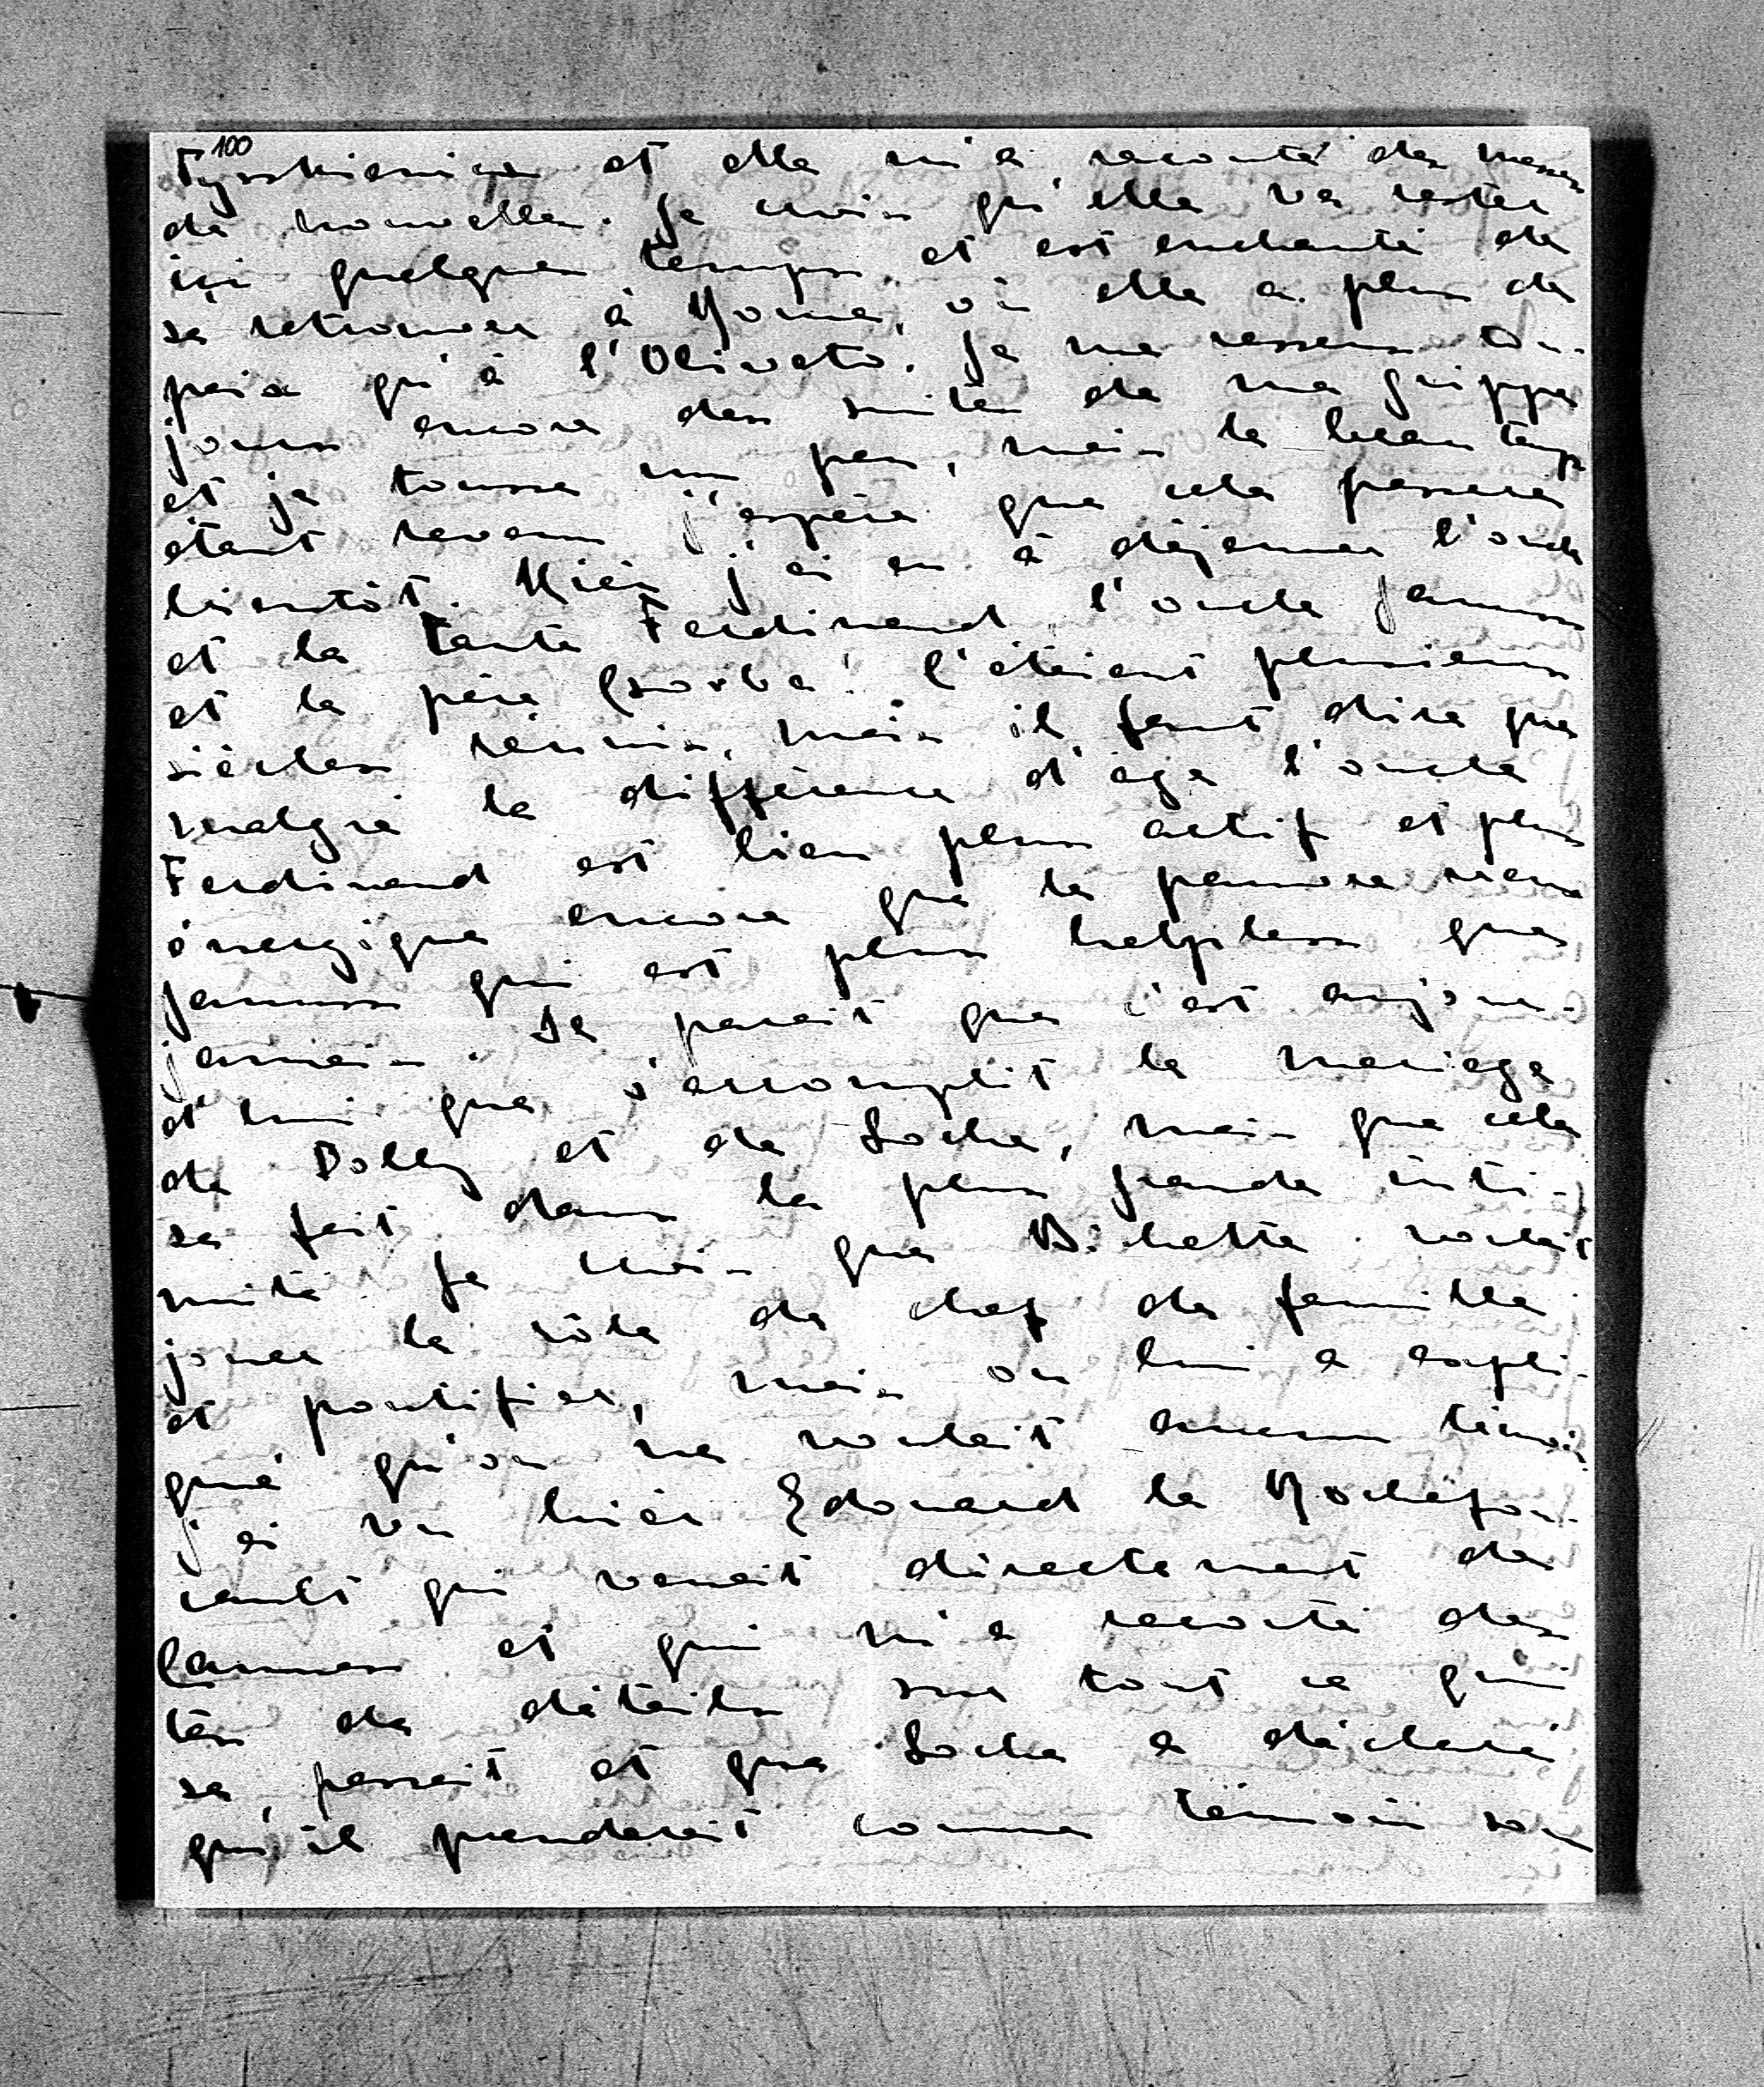 100
Tyszkiewicz et elle m'a raconté des masses
de nouvelles. Je crois qu'elle va rester
ici quelques temps et est enchanté de
se retrouver à Rome, où elle a plus de
paix qu'à l'Oliveto. Je me ressens tou-
jours encore des suites de ma grippe
et je tousse un peu, mais le beau temps
étant revenu j'espère que cela passera
bientôt. Hier j'ai eu à déjeuner l'oncle
et la tante Ferdinand, l'oncle Janusz
et le père . C'étaient plusieurs
siècles réunis, mais il faut dire que
malgré la différence d'âge l'oncle
Ferdinand est bien plus actif et plus
énergique encore que le pauvre vieux
Janusz qui est plus helpless que
jamais. Il parait que c'est aujour-
d'hui que s'accomplit le mariage
de Dolly et de Loche, mais que cela
se fait dans la plus grande inti-
mité. Je crois que Bichette voulait
jouer le rôle de chef de famille
et pontifier, mais on lui a expli-
qué qu'on ne voulait aucun témoin.
J'ai vu hier Edouard la Rochefou-
cault qui venait directement de
Cannes et qui m'a racouté des
tas de détails sur tout ce qui
se passait et que Loche a déclaré
qu'il prenderait comme témoin son